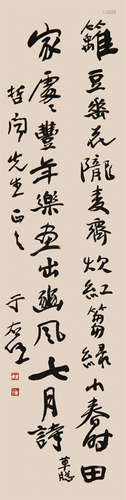 籬豆花隴麥齊紅綠小春時田
家處々豐年樂畫出豳風七月詩
草牕
哲先生正之
于右任